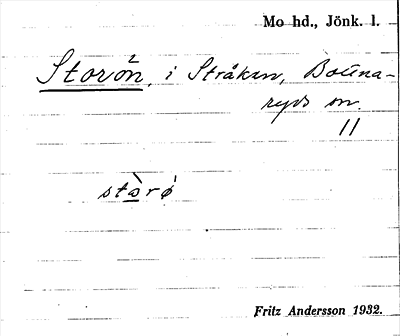 Mo hd., Jönk. l.
Storön, i Stråken, Bottna-
ryds sn.
11
stòrǿ
Fritz Andersson 1932.